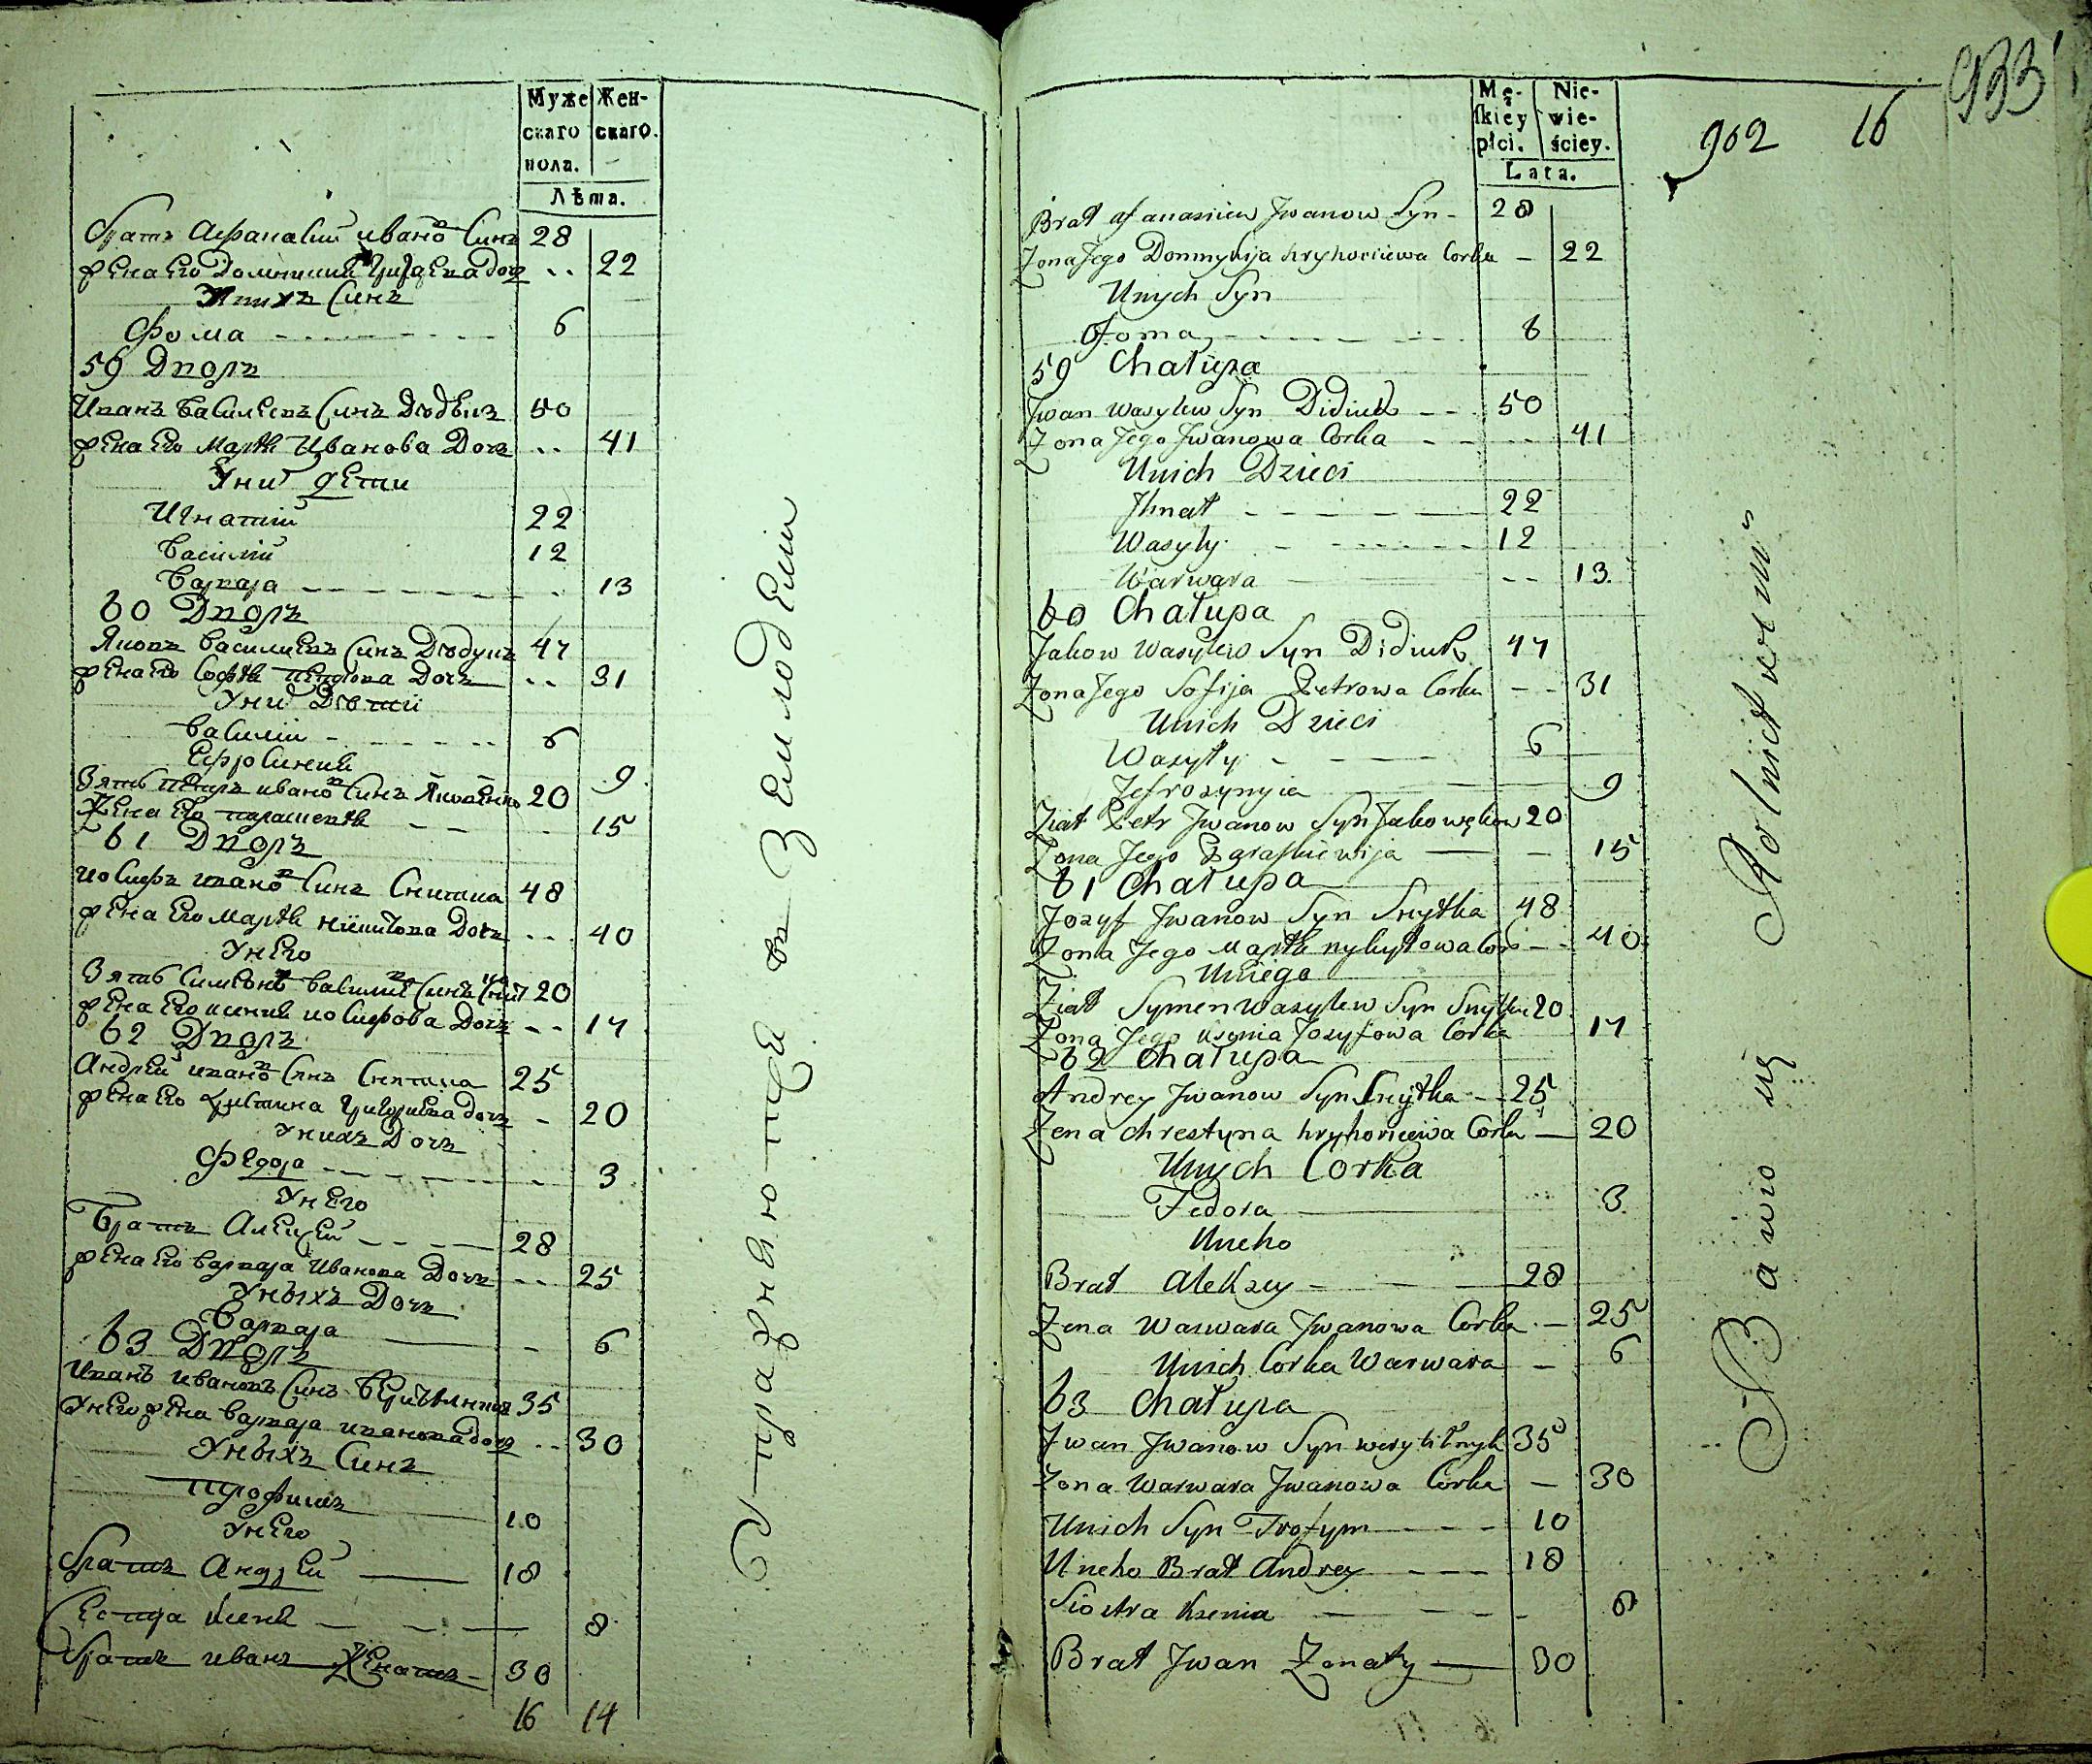 Муже
скаго
пола.
Жен-
скаго.
Лѣта.
Братъ Афанасий Ивановъ Синъ 28
Жена Его Домникия Григориева дочъ .. 22
Унихъ Синъ
Фома 6
59 Дворъ
Иванъ Василевъ Синъ 50
Жена Его Марѳа Иванова Дочъ .. 41
Уних дети
Игнатий 22
Василий 12
Варвара 13
60 Дворъ
Яковъ Василиевъ Синъ 47
Жена Его Софѣя Петрова Дочъ .. 31
Уних Дѣти
Василий 6
Ефросиния 9
Зять Петръ Ивановъ Синъ 20
Жена Его Параскевия 15
61 Дворъ
Иосифъ Ивановъ Синъ Снитка 48
Жена Его Марѳа Никитова Дочъ .. 40
Унего
Зять Симеонъ Василиевъ Синъ 20
Жена Его Ксения Иосифова Дочъ 17
62 Дворъ
Андрей Ивановъ Синъ Снитка 25
Жена Его Христина Григориева дочъ 20
Унихъ Дочъ
Федора 3
Унего
Братъ Алексей 28
Жена Его Варвара Иванова Дочъ .. 25
Уныхъ Дочъ
Варвара 6
63 Дворъ
Иванъ Ивановъ Синъ 35
Унего жена Варвара Иванова дочъ .. 30
Уныхъ Синъ
Трофимъ 10
Унего
Братъ Андрей 18
Сестра Ксения 8
Братъ Иванъ Женатъ 30
16 14
Упражняются въ Земледелии
Mę-
ſkiey
płci.
Nie-
wie-
ściey.
Lata.
902 16
933
Brat afanasiiew Jwanow Syn 28
Zona Jego Domnykija hryhoriiewa Corka 22
Unych Syn
Foma 6
59 Chałupa
Jwan Wasylew Syn Didiuk 50
Zona Jego Jwanowa Corka 41
Unich Dzieci
Jhnat 22
Wasyly 12
Warwara 13
60 Chałupa
Jakow Wasylew Syn Didiuk 47
Zona Jego Sofija Petrowa Corka 31
Unich Dzieci
Wasyly 6
Jefrozynyia 9
Ziat Petr Jwanow Syn 20
Zona Jego Paraskiewija 15
61 Chałupa
Jozyf Jwanow Syn Snytka 48
Zona Jego Marth nykytowa Cor 40
Uniego
Ziat Symen Wasylew Syn Snytka 20
Zona Jego Ksenia Jozyfowa Corka 17
62 Chałupa
Andrey Jwanow Syn Snytka 25
Zena Chrestyna hryhoriewa Corka 20
Unych Corka
Fedora 3
Uneho
Brat Alekzey 28
Zena Warwara Jwanowa Corka 25
Unich Corka Warwara 6
63 Chałupa
Jwan Jwanow Syn 35
Zona Warwara Jwanowa Corka 30
Unich Syn Trofym 10
Uneho Brat Andrey 18
Siostra Ksenia 8
Brat Jwan Zonaty 30
Bawią się Rolnictwem